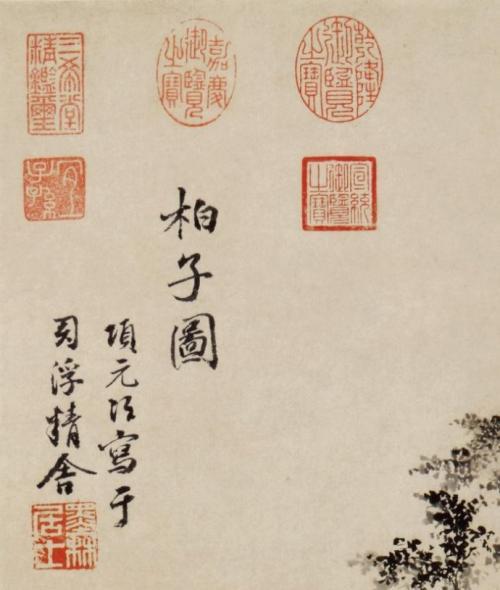 乾隆御覽之寶
宣統御覽之寶
嘉慶御覽之寶
三希堂精鑑璽
宜子孫
柏子圖
項元汴寫于
幻浮精舍
墨林居士